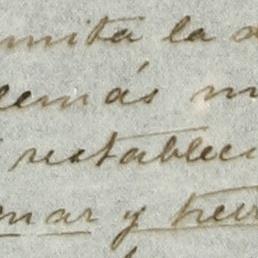 mita la
demás
restablec
mar y tier